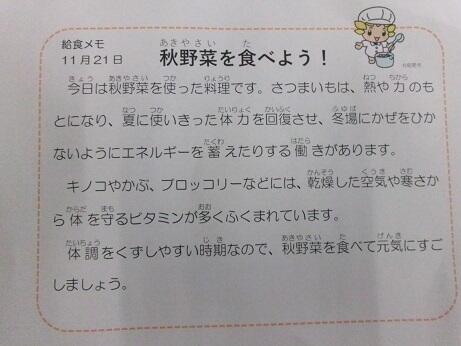 給食メモ
11月21日
秋野菜を食べよう！
今日は秋野菜を使った料理です。さつまいもは、熱や力のも
とになり、夏に使いきった体力を回復させ、冬場にかぜをひか
ないようにエネルギーを蓄えたりする働きがあります。
キノコやかぶ、ブロッコリーなどには、乾燥した空気や寒さか
ら体を守るビタミンが多くふくまれています。
体調をくずしやすい時期なので、秋野菜を食べて元気にすご
しましょう。